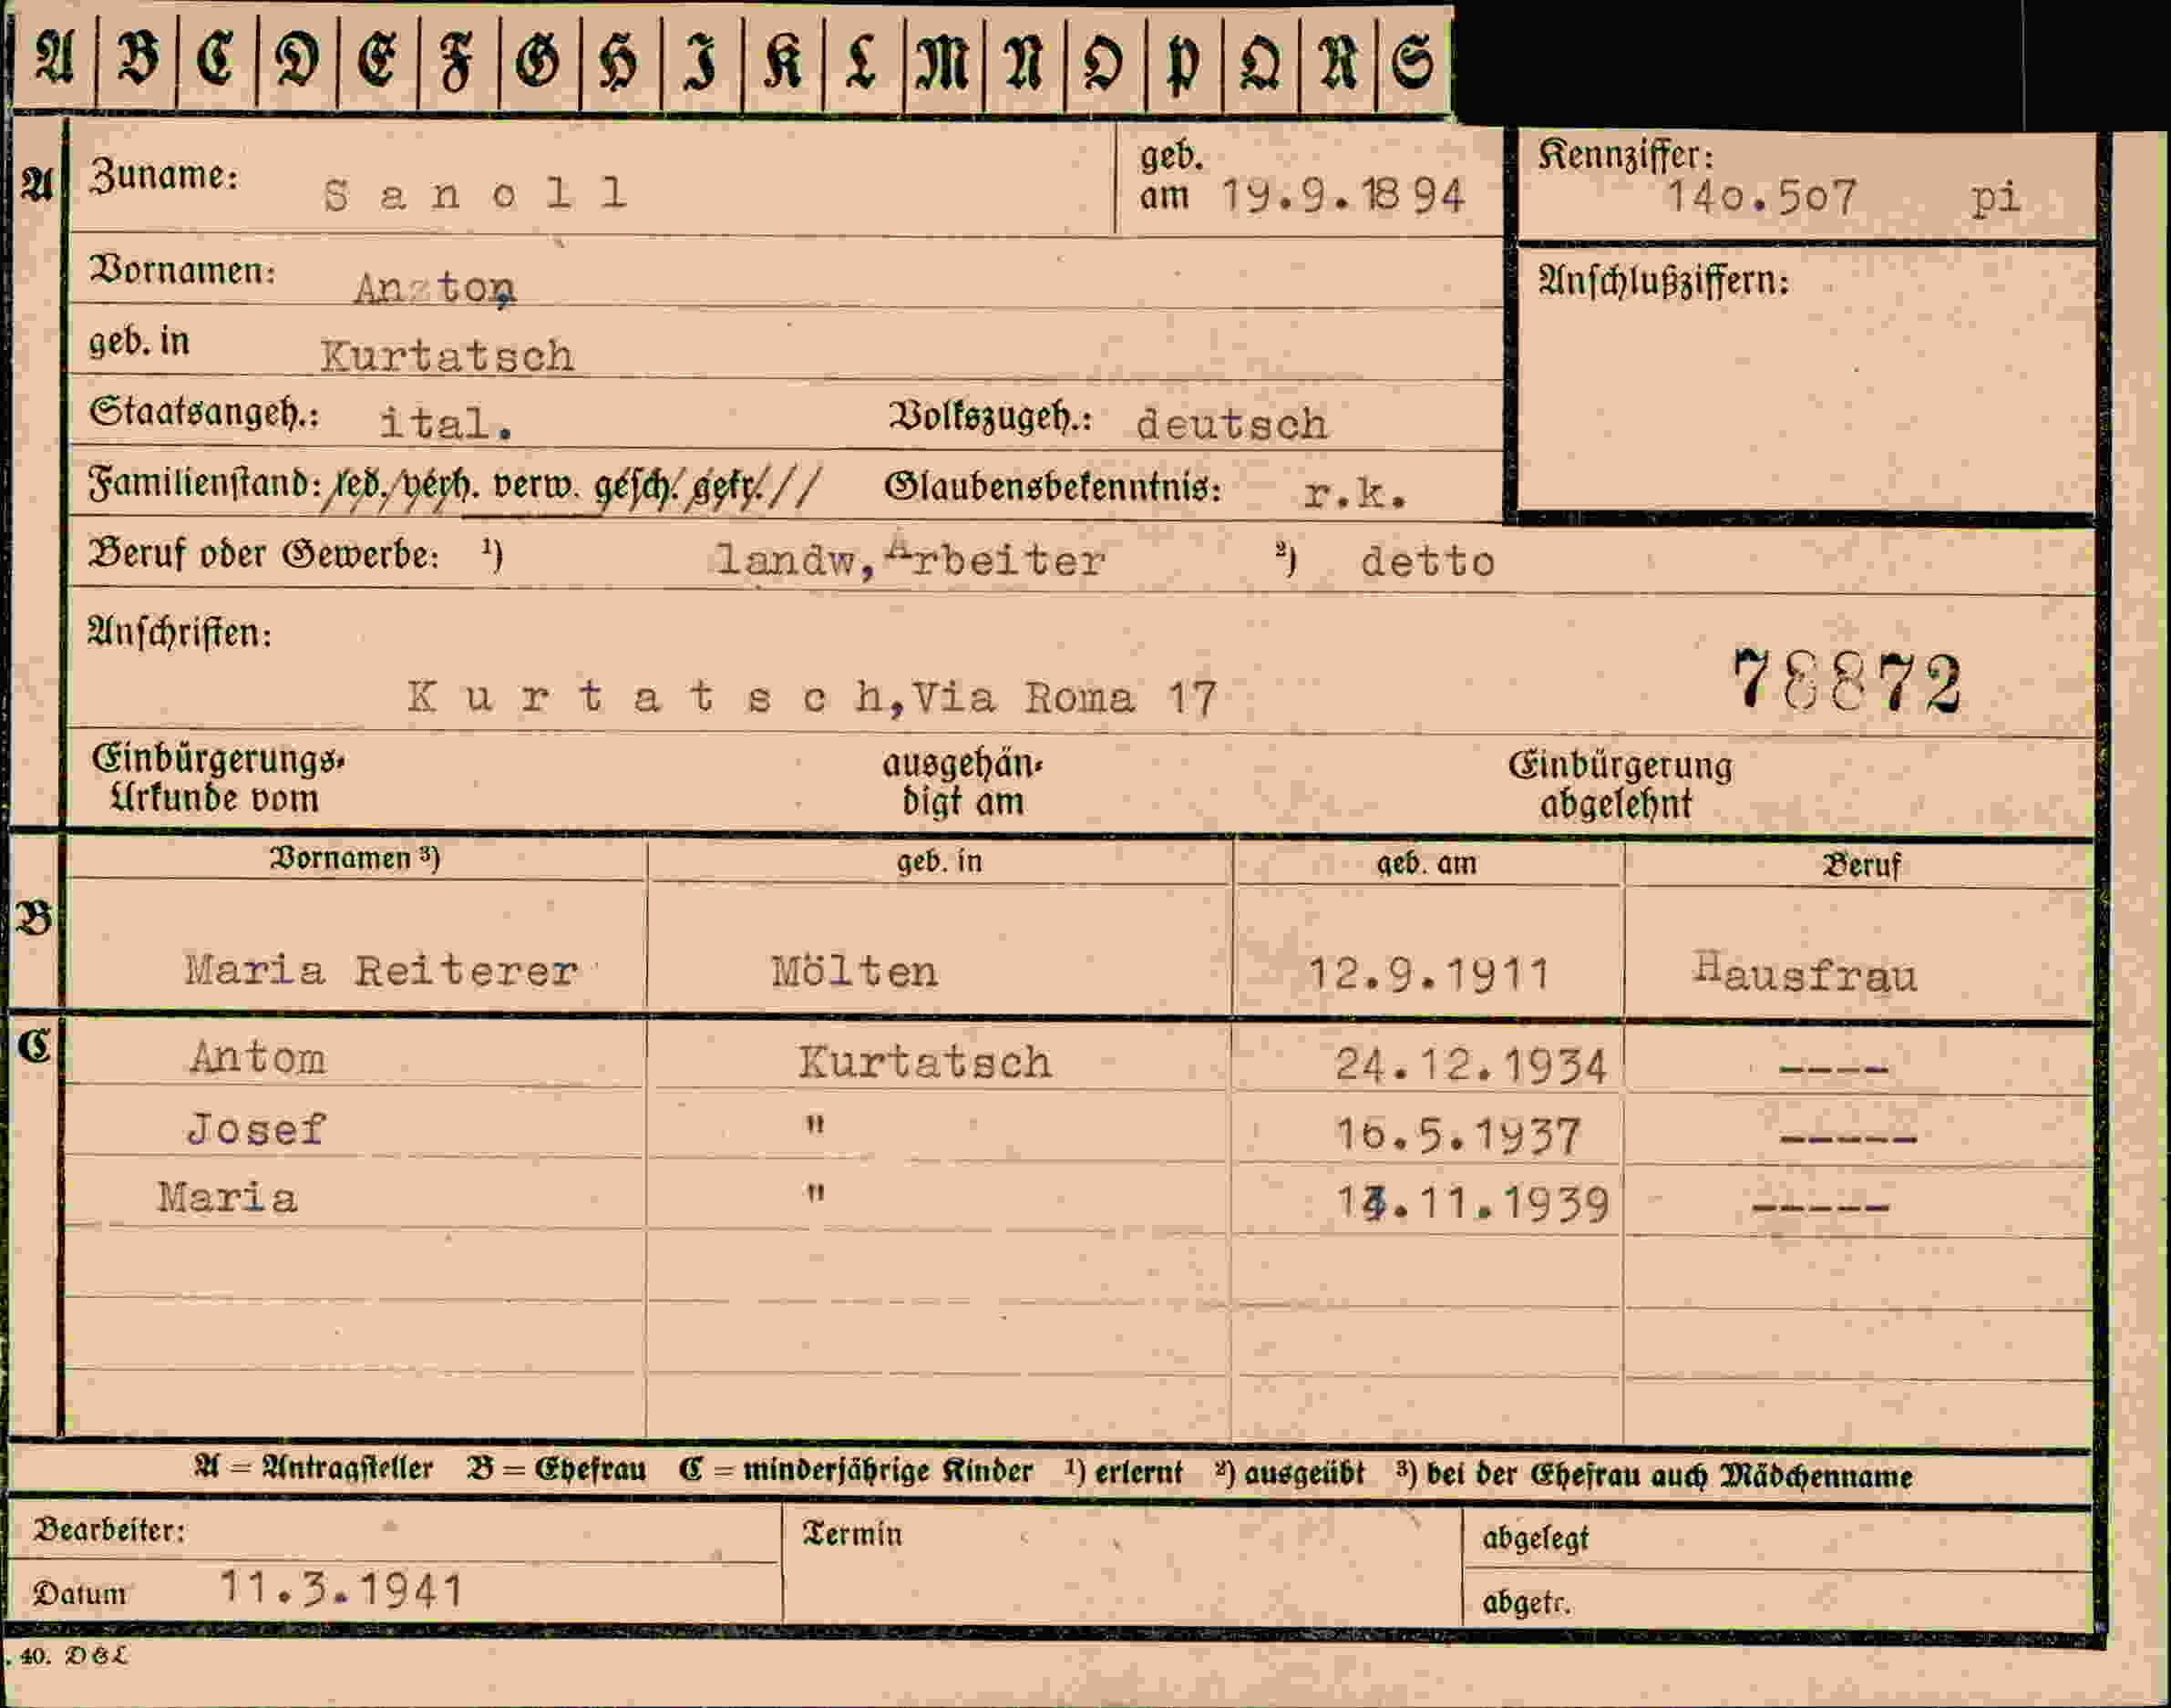 A B C D E F G H I K L M N O P Q R S
A Zuname: Sanoll geb. am 19.9.1894 Kennziffer: 140.507 pi
Vornamen: Anton Anschlußziffern:
geb. in Kurtatsch
Staatsangeh.: ital. Volkszugeh.: deutsch
Familienstand: led. verh. verw. gesch. getr. Glaubensbekenntnis: r.k.
Beruf oder Gewerbe: ¹) landw, Arbeiter ²) detto
Anschriften:
Kurtatsch, Via Roma 17 78872
Einbürgerungs-Urkunde vom ausgehän-digt am Einbürgerung abgelehnt
Vornamen ³) geb. in geb. am Beruf
B Maria Reiterer Mölten 12.9.1911 Hausfrau
C Antom Kurtatsch 24.12.1934 ----
Josef " 16.5.1937 -----
Maria " .11.1939 -----
A = Antragsteller B = Ehefrau C = minderjährige Kinder ¹) erlernt ²) ausgeübt ³) bei der Ehefrau auch Mädchenname
Bearbeiter: Termin abgelegt
Datum 11.3.1941 abgetr.
. 40. D & L